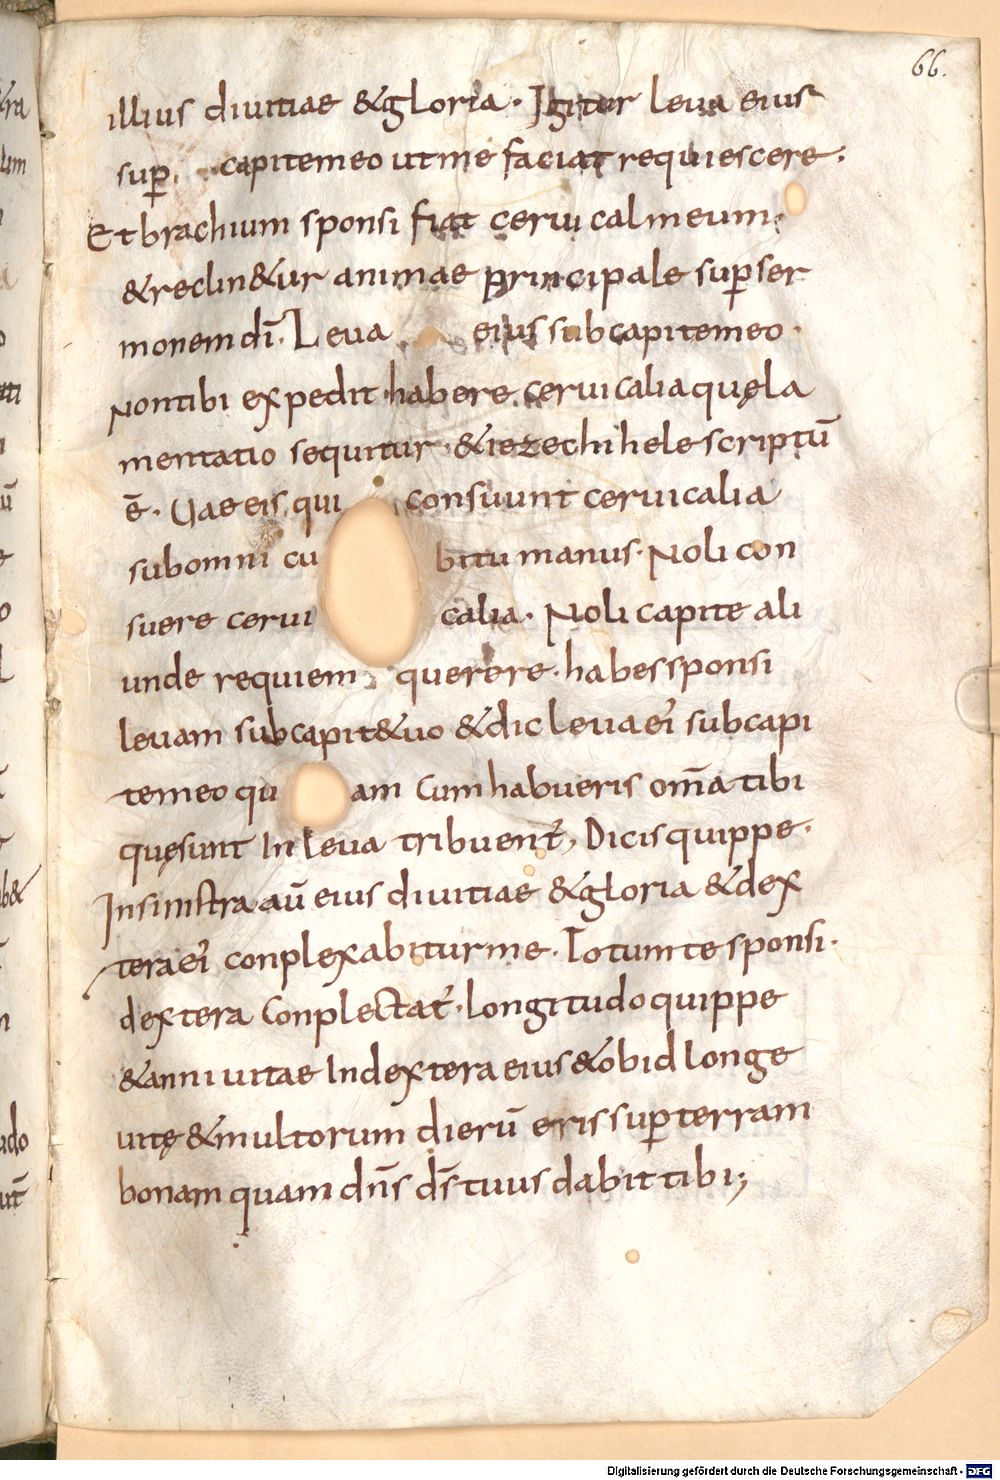 66.
illius divitiae &gloria. Igitur leva eius
sup̱ capitemeo utme faciat requiescere.
Et brachium sponsi fiat cervical meum.
&reclin&ur animae principale sup̱ ser
monem dī. Leva eius subcapitemeo.
Non tibi expedit habere cervicalia quę la
mentatio sequitur. &iezechihele scriptū
ē. Uae eis qui consuunt cervicalia
subomni cu bitu manus. Noli con
suere cervi calia. Noli capite ali
unde requiem querere. habes sponsi
levam subcapit&uo &dic leva eī subcapi
temeo qu am Cum habueris om̄a tibi
quęsunt In leva tribuent̄, Dicis quippe.
Insinistra aū eius divitiae &gloria &dex
tera eī conplexabitur me. Totum te sponsi.
dextera Conplectat̄. longitudo quippe
&anni vitae Indextera eius &obid longe
vitę &multorum dierū eris sup̱ terram
bonam quam dn̄s ds̄ tuus dabit tibi;
Digitalisierung gefördert durch die Deutsche Forschungsgemeinschaft - DFG